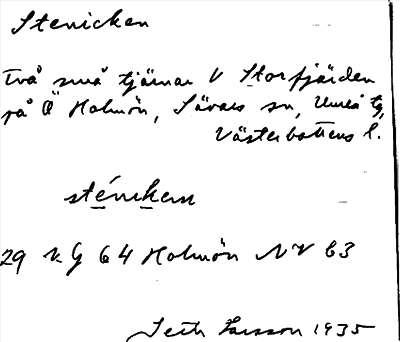 Stenicken
Två små tjärnar V Storfjärden
på Ö Holmön, Sävars sn, Umeå tg,
Västerbottens l.
sténiken
29 K G 64 Holmön NV 63
Seth Larsson 1935